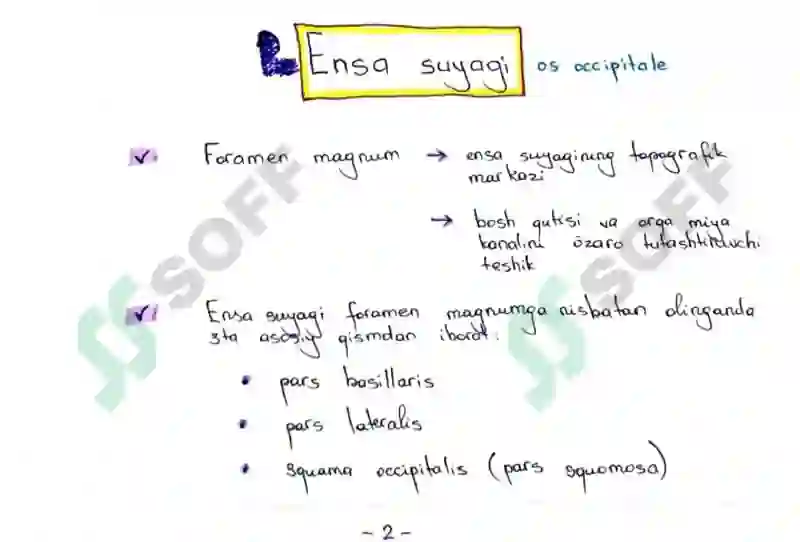 2. Ensa suyagi os occipitale
✓: Foramen magnum → ensa suyagining topografik
markazi
→ bosh qutisi va orqa miya
kanalini o'zaro tutashtiruvchi
teshik
✓: Ensa suyagi foramen magnumga nisbatan olinganda
3ta asosiy qismdan iborat:
• pars basillaris
• pars lateralis
• squama occipitalis (pars squomosa)
- 2 -
SOFF
SOFF